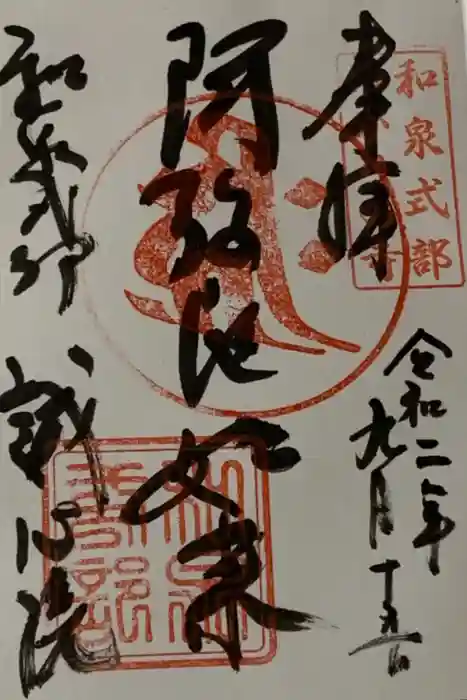 奉拝
和泉式部寺
令和二年
九月十九日
阿弥陀如来
和泉式部
誠心院